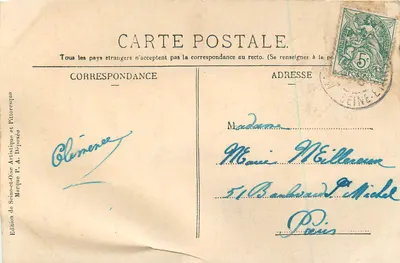 CARTE POSTALE
Tous les pays étrangers n'acceptent pas la correspondance au recto. (Se renseigner à la p
CORRESPONDANCE
ADRESSE
Clémence
Madame
Marie Millereux
51 Boulevard St Michel
Paris
Edition de Seine-et-Oise Artistique et Pittoresque
Marque P. A. Déposée
5
SEINE-E